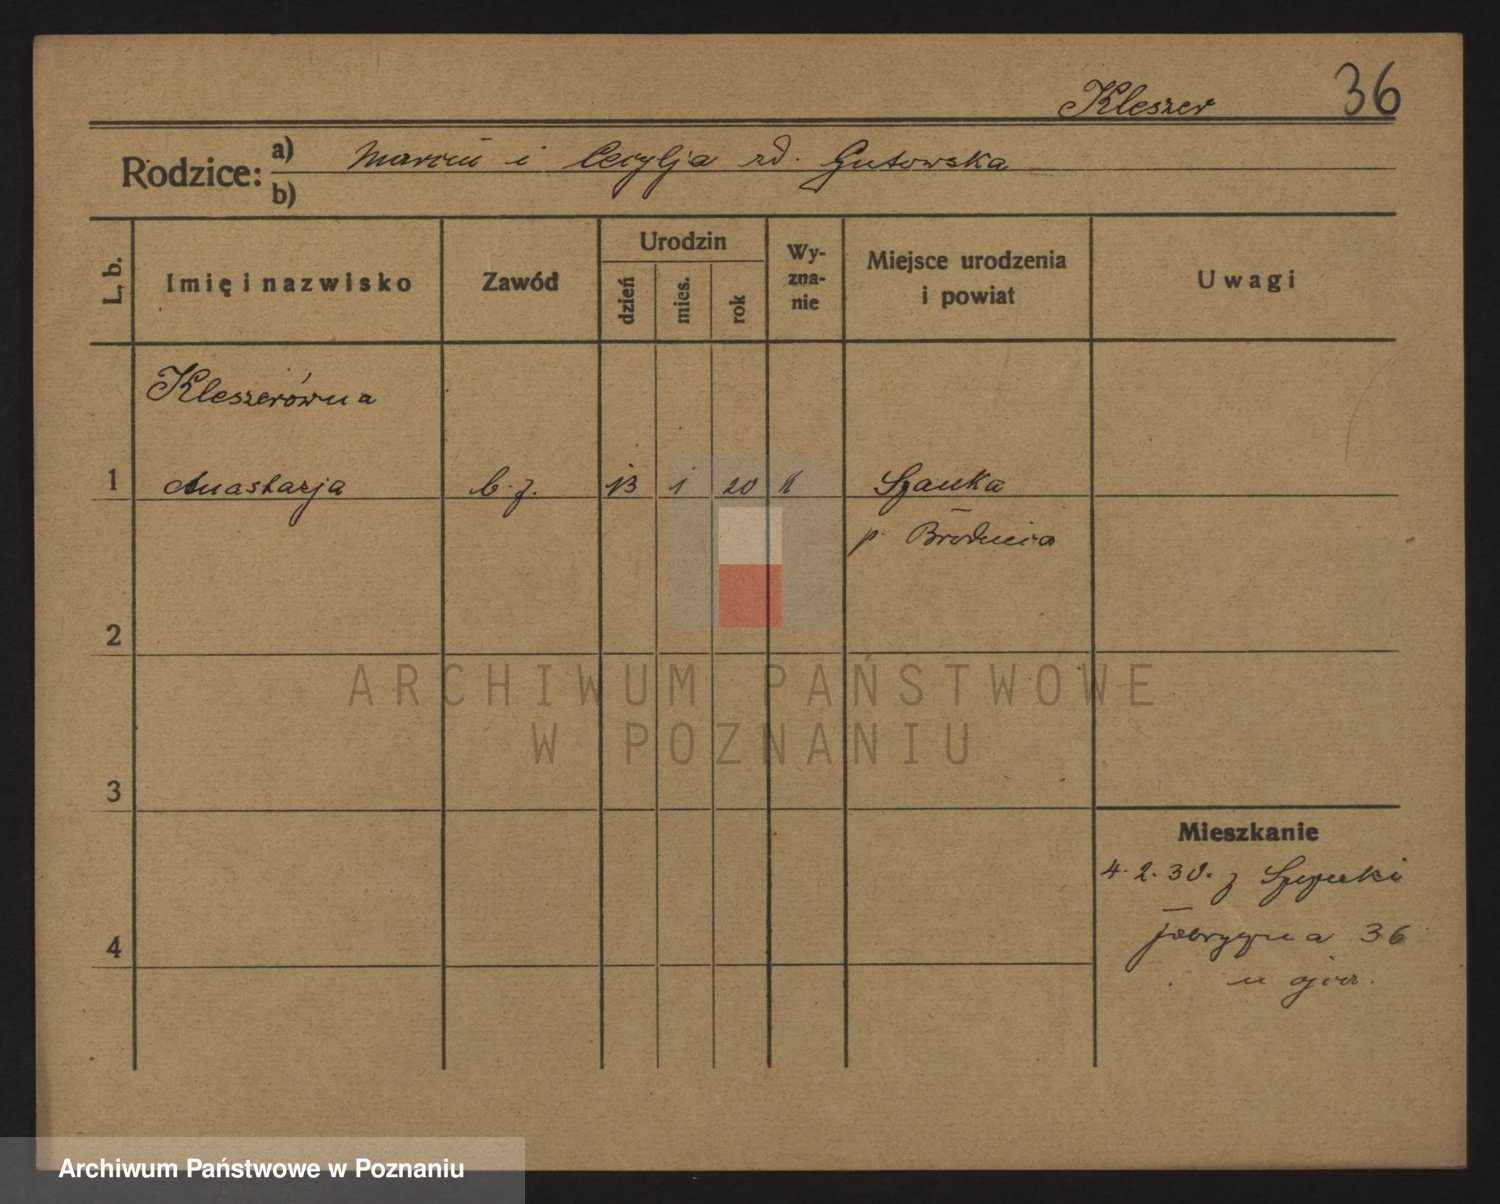 Kleszer 36
Rodzice: a) Marcin i Cecylja zd. Gutowska
b)
L. b.
Imię i nazwisko
Zawód
Urodzin
dzień
mies.
rok
Wy-
zna-
nie
Miejsce urodzenia
i powiat
Uwagi
Kleszerówna
1 Anastazja b. z. 13 1 20 k Szauka
p. Brodnica
2
3
4
Mieszkanie
4. 2. 30. z
36
u ojca.
ARCHIWUM PAŃSTWOWE
W POZNANIU
Archiwum Państwowe w Poznaniu